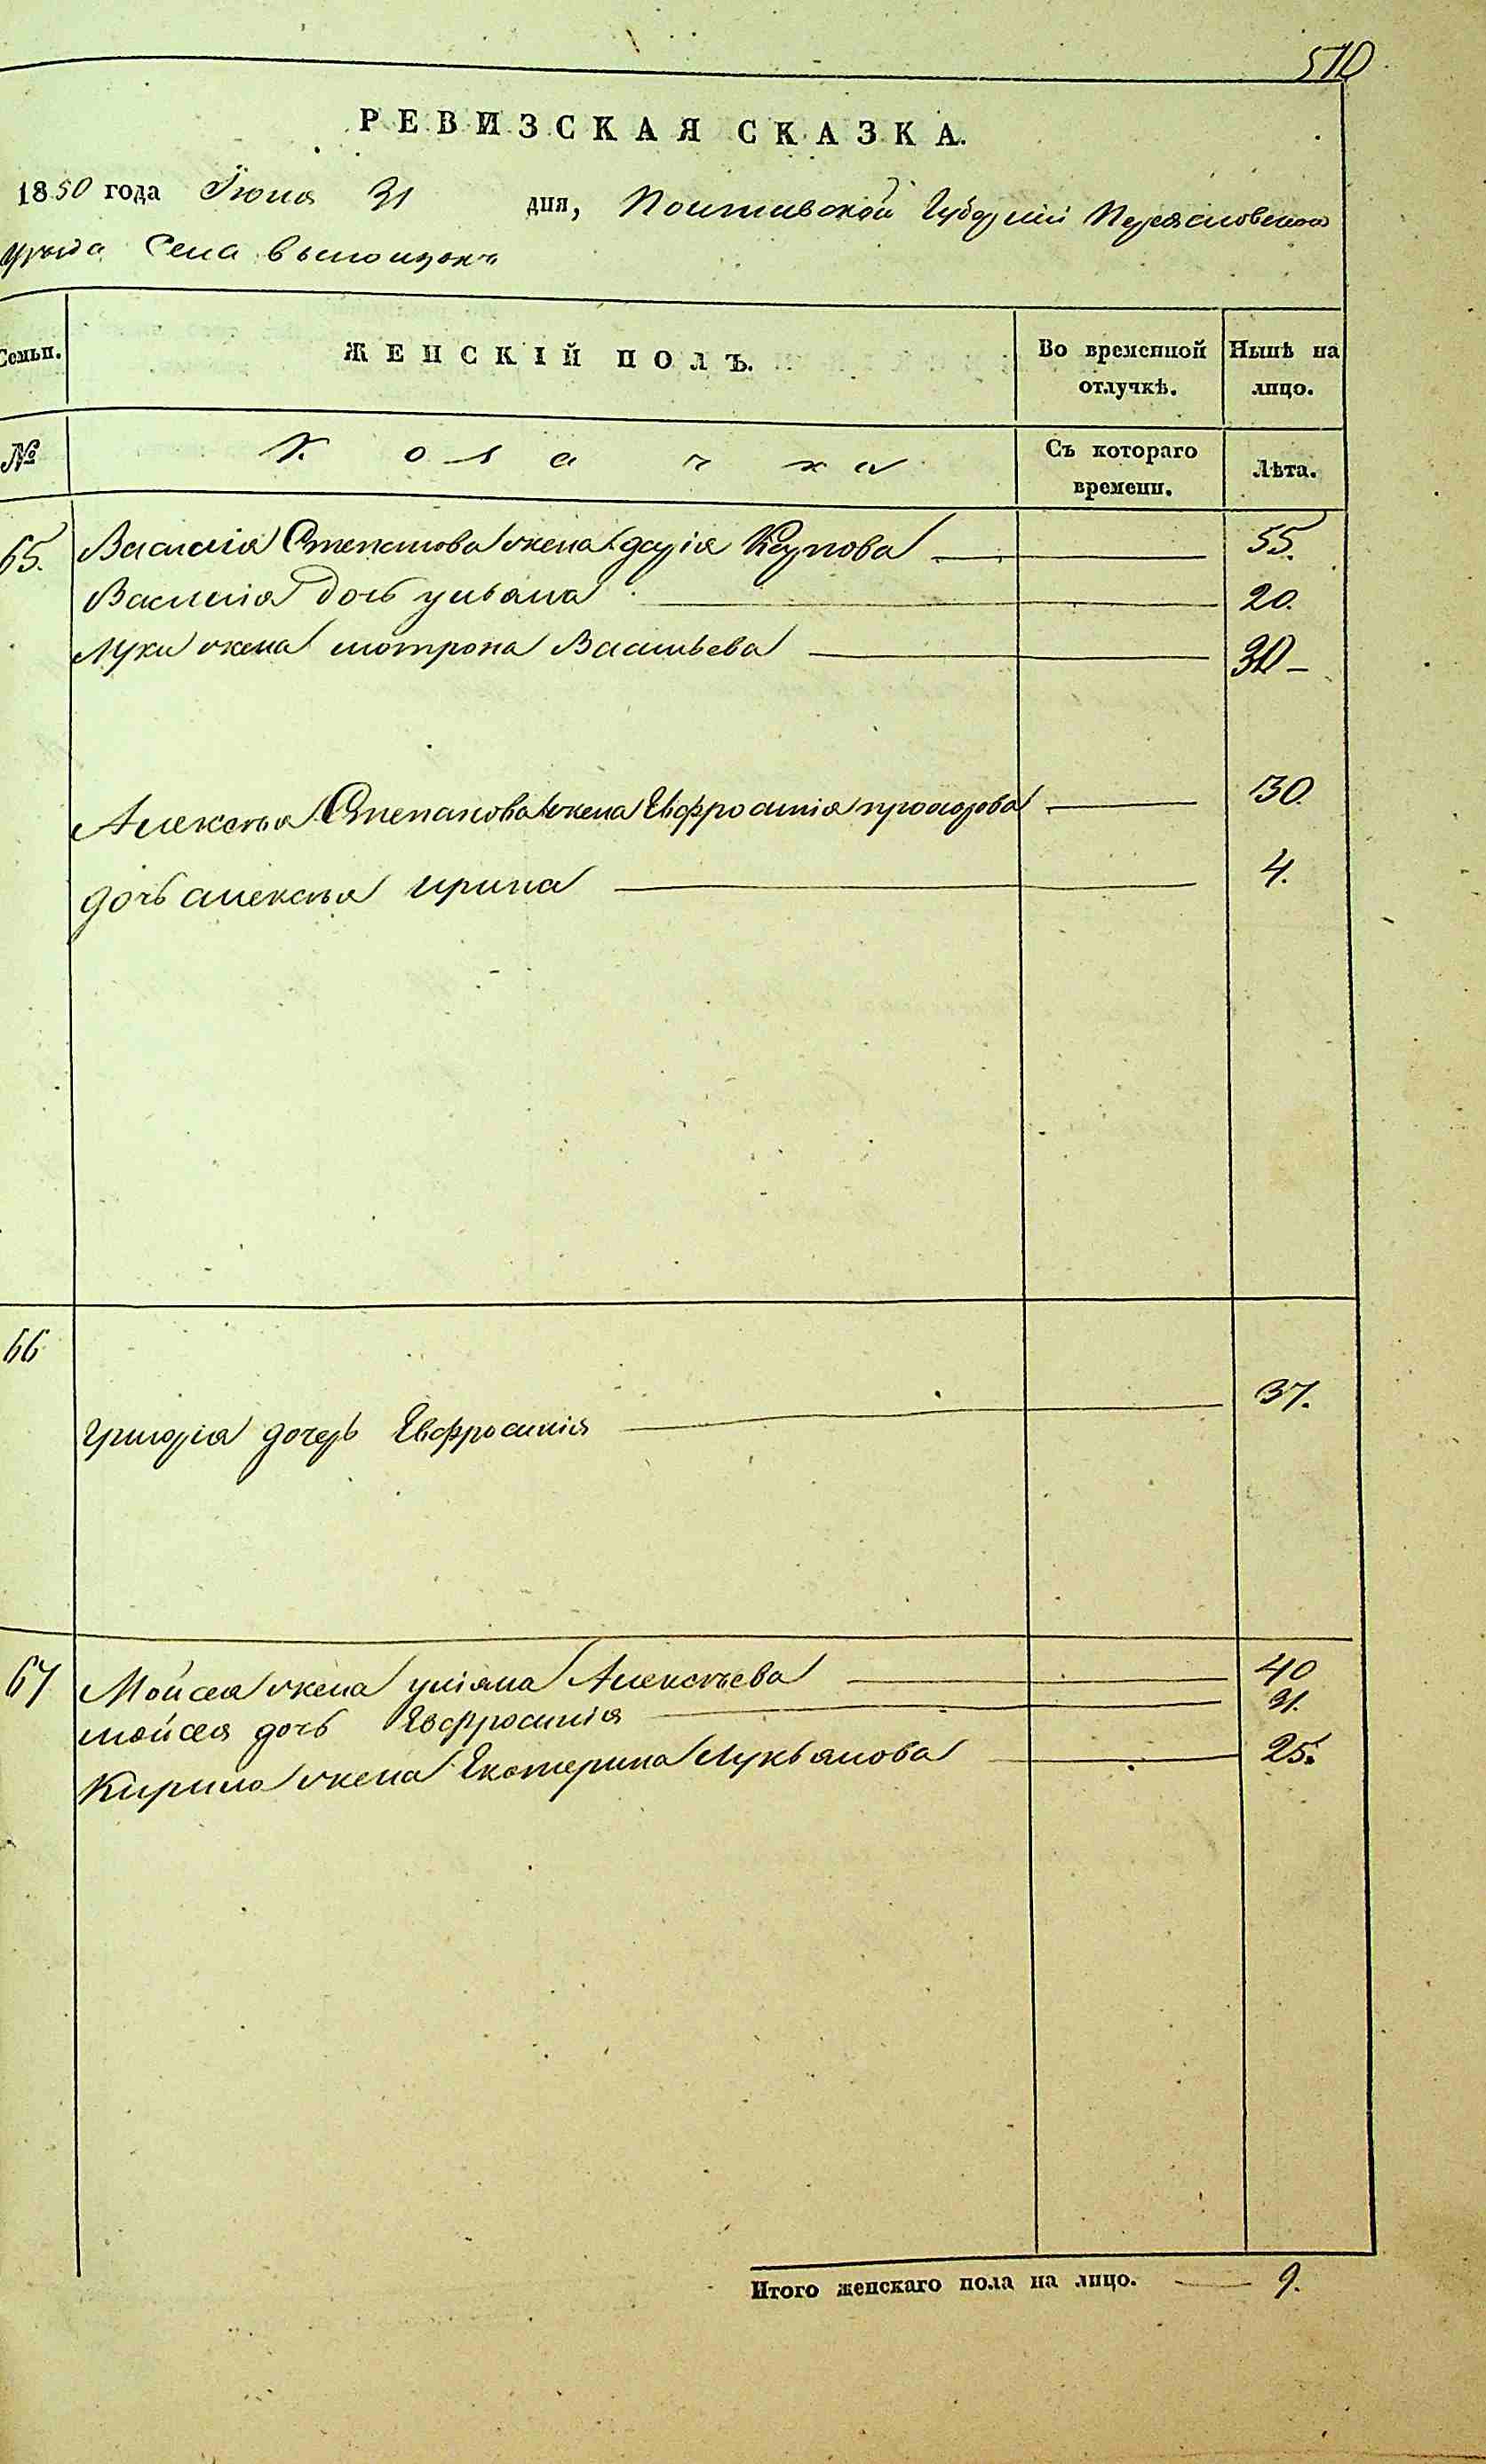 510
РЕВИЗСКАЯ СКАЗКА.
1850 года Июня 31 дня, Полтавской Губернии Переясловского
уезда Села
Семьи. ЖЕНСКІЙ ПОЛЪ. Во временной отлучкѣ. Нынѣ на лицо.
№ К о з а ч к а Съ котораго времени. Лѣта.
65. Василия Степанова жена дарія Карпова 55.
Василия дочь ульяна 20.
Луки жена мотрона Васильева 30
Алексѣя Степанова жена Евфросинія 30
дочь алексѣя ирина 4.
66
Григорія дочерь Евфросинія 37.
67 Мойсея жена уліяна Алексѣева 40
мойсея дочь Евфросинія 21.
Кирила жена Екатерина Лукьянова 25.
Итого женскаго пола на лицо. 9.